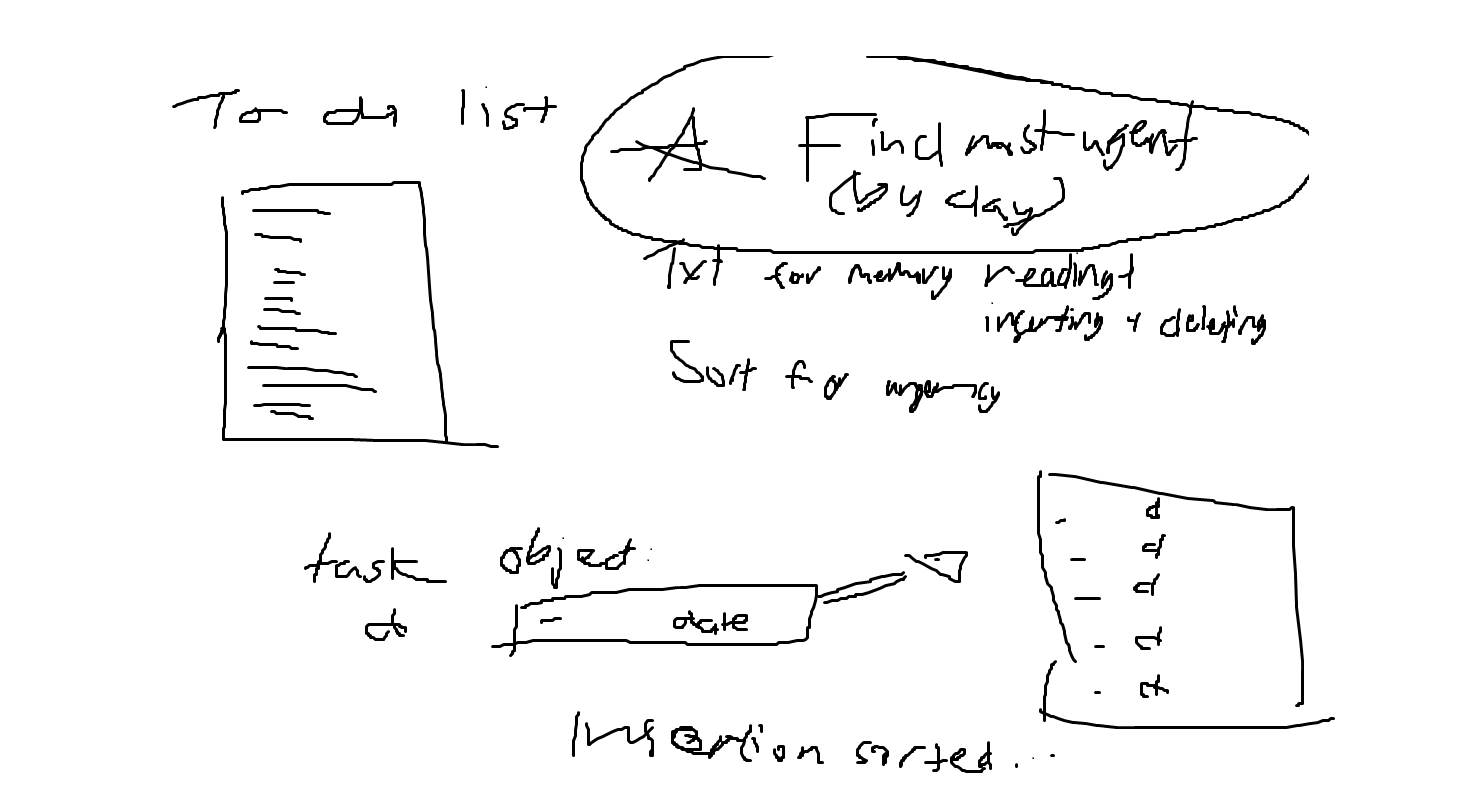 To do list
Find most urgent
(by day)
Txt for memory reading +
inserting + deleting
Sort for urgency
task object
- date
- d
- d
- d
- d
- d
Insertion sorted...